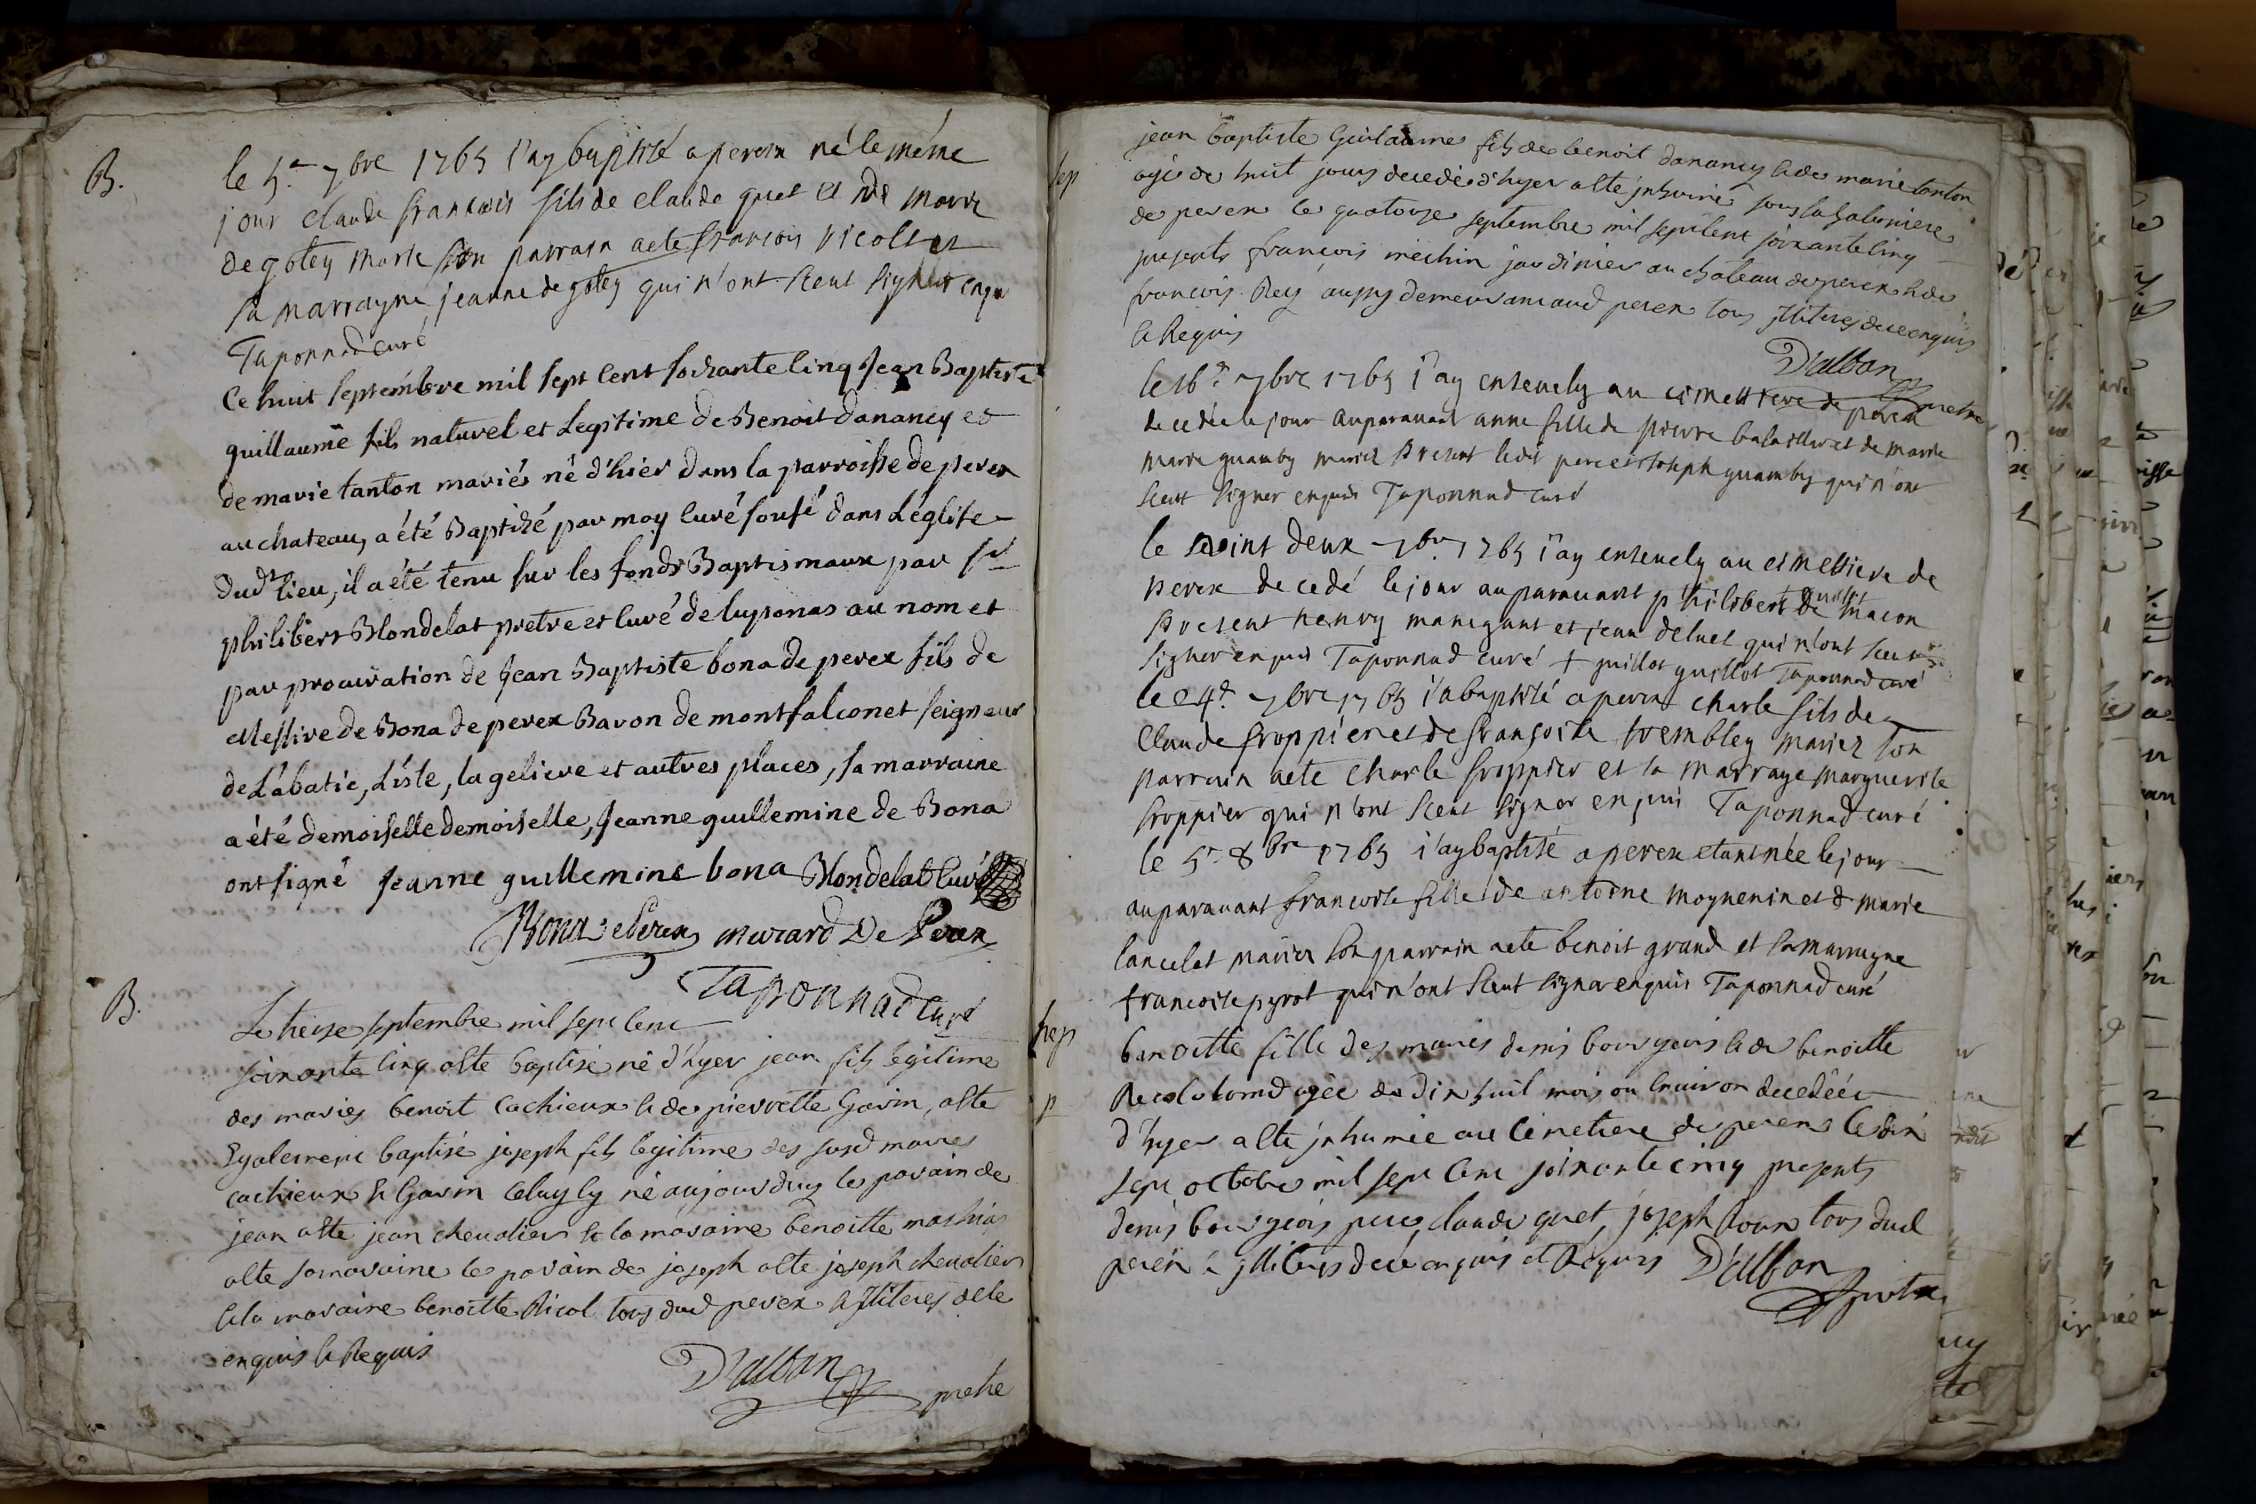 B.
le 5.e 7bre 1765 i'ay baptisé a perex né le même
jour claude francois fils de claude guet et de marie
de gotey marie son parrain aeté francois nicollet
sa marrayne jeanne de gotey qui n'ont sceut signer enqu
Taponnad curé
Ce huit septembre mil sept cent soixante cinq Jean Baptiste
guillaume fils naturel et Legitime de Benoit danancy et
de marie tanton mariés né d'hier dans la parroisse de perex
au chateau, a été Baptizé par moy curé sousé dans L'église
dud lieu, il a été tenu sur les fonds Baptismaux par sr
philibert Blondelat pretre et curé de luponas au nom et
par procuration de Jean Baptiste bona de perex fils de
Messire de Bona de perex Baron de montfalconet seigneur
de L'abatie, L'isle, la geliere et autres places, sa marraine
a été demoiselle demoiselle, Jeanne guillemine de Bona
ont signé jeanne guillemine bona Blondelat curé
Bona de Perex murard De Perex
Taponnad curé
B.
Le treize septembre mil sept cent
soixante cinq a été baptisé né d'hyer jean fils legitime
des mariés benoit cochieux & de pierrette Gavin, a été
Egalement baptisé joseph fils legitime des susd maries
cochieux & Gavin celuy cy né aujourduy le parain de
jean a été jean chevalier & la maraine benoitte mathias
a été sa maraine le parain de joseph a été joseph chevalier
& la maraine benoitte Nicol tous dud perex & illiteres de ce
enquis & Requis
D'alban
pretre
sep
jean baptiste Guilaume fils de benoit danancy & de marie tanton
agé de huit jours decedé d'hyer a été inhumé sous la
de perex le quatorze septembre mil sept cent soixante cinq
presents françois méchin jardinier au chateau de perex & de
francois Rey aussy demeurant aud perex tous illiteres de ce enquis
& Requis
D'alban
pretre
le 16.e 7bre 1765 i'ay ensevely au cimettiere de perex
decedée le jour auparavant anne fille de pierre et de marie
marie guamby mariez present ledit pere et joseph guamby qui n'ont
sceut signer enquis Taponnad curé
le vint deux 7bre 1765 i'ay ensevely au cimettiere de
perex decedé le jour auparavant philibert guillot de macon
present henry manigant et jean deluet qui n'ont sceut
signer enquis Taponnad curé + guillot guillot Taponnad curé
le 24.e 7bre 1765 i'a baptisé a perex charle fils de
Claude froppier et de françoise trembley mariez son
parrain aeté charle froppier et sa marrayne marguerite
froppier qui n'ont sceut signer enquis Taponnad curé
le 5e 8bre 1765 i'ay baptisé a perex etant née le jour
auparavant francoise fille de antoine moynenin et de marie
lancelot mariez son parrain aeté benoit grand et sa marrayne
francoise pyrot qui n'ont sceut signer enquis Taponnad curé
sep
benoitte fille des mariés denis bourgeois & de benoitte
agée de dix huit mois ou environ decedée
d'hyer a été inhumée au cimetiere de perex le dix
sept octobre mil sept cent soixante cinq presents
denis bourgeois pere, claude guet, joseph tous dud
perex & illiteres de ce enquis et Requis D'alban
pretre